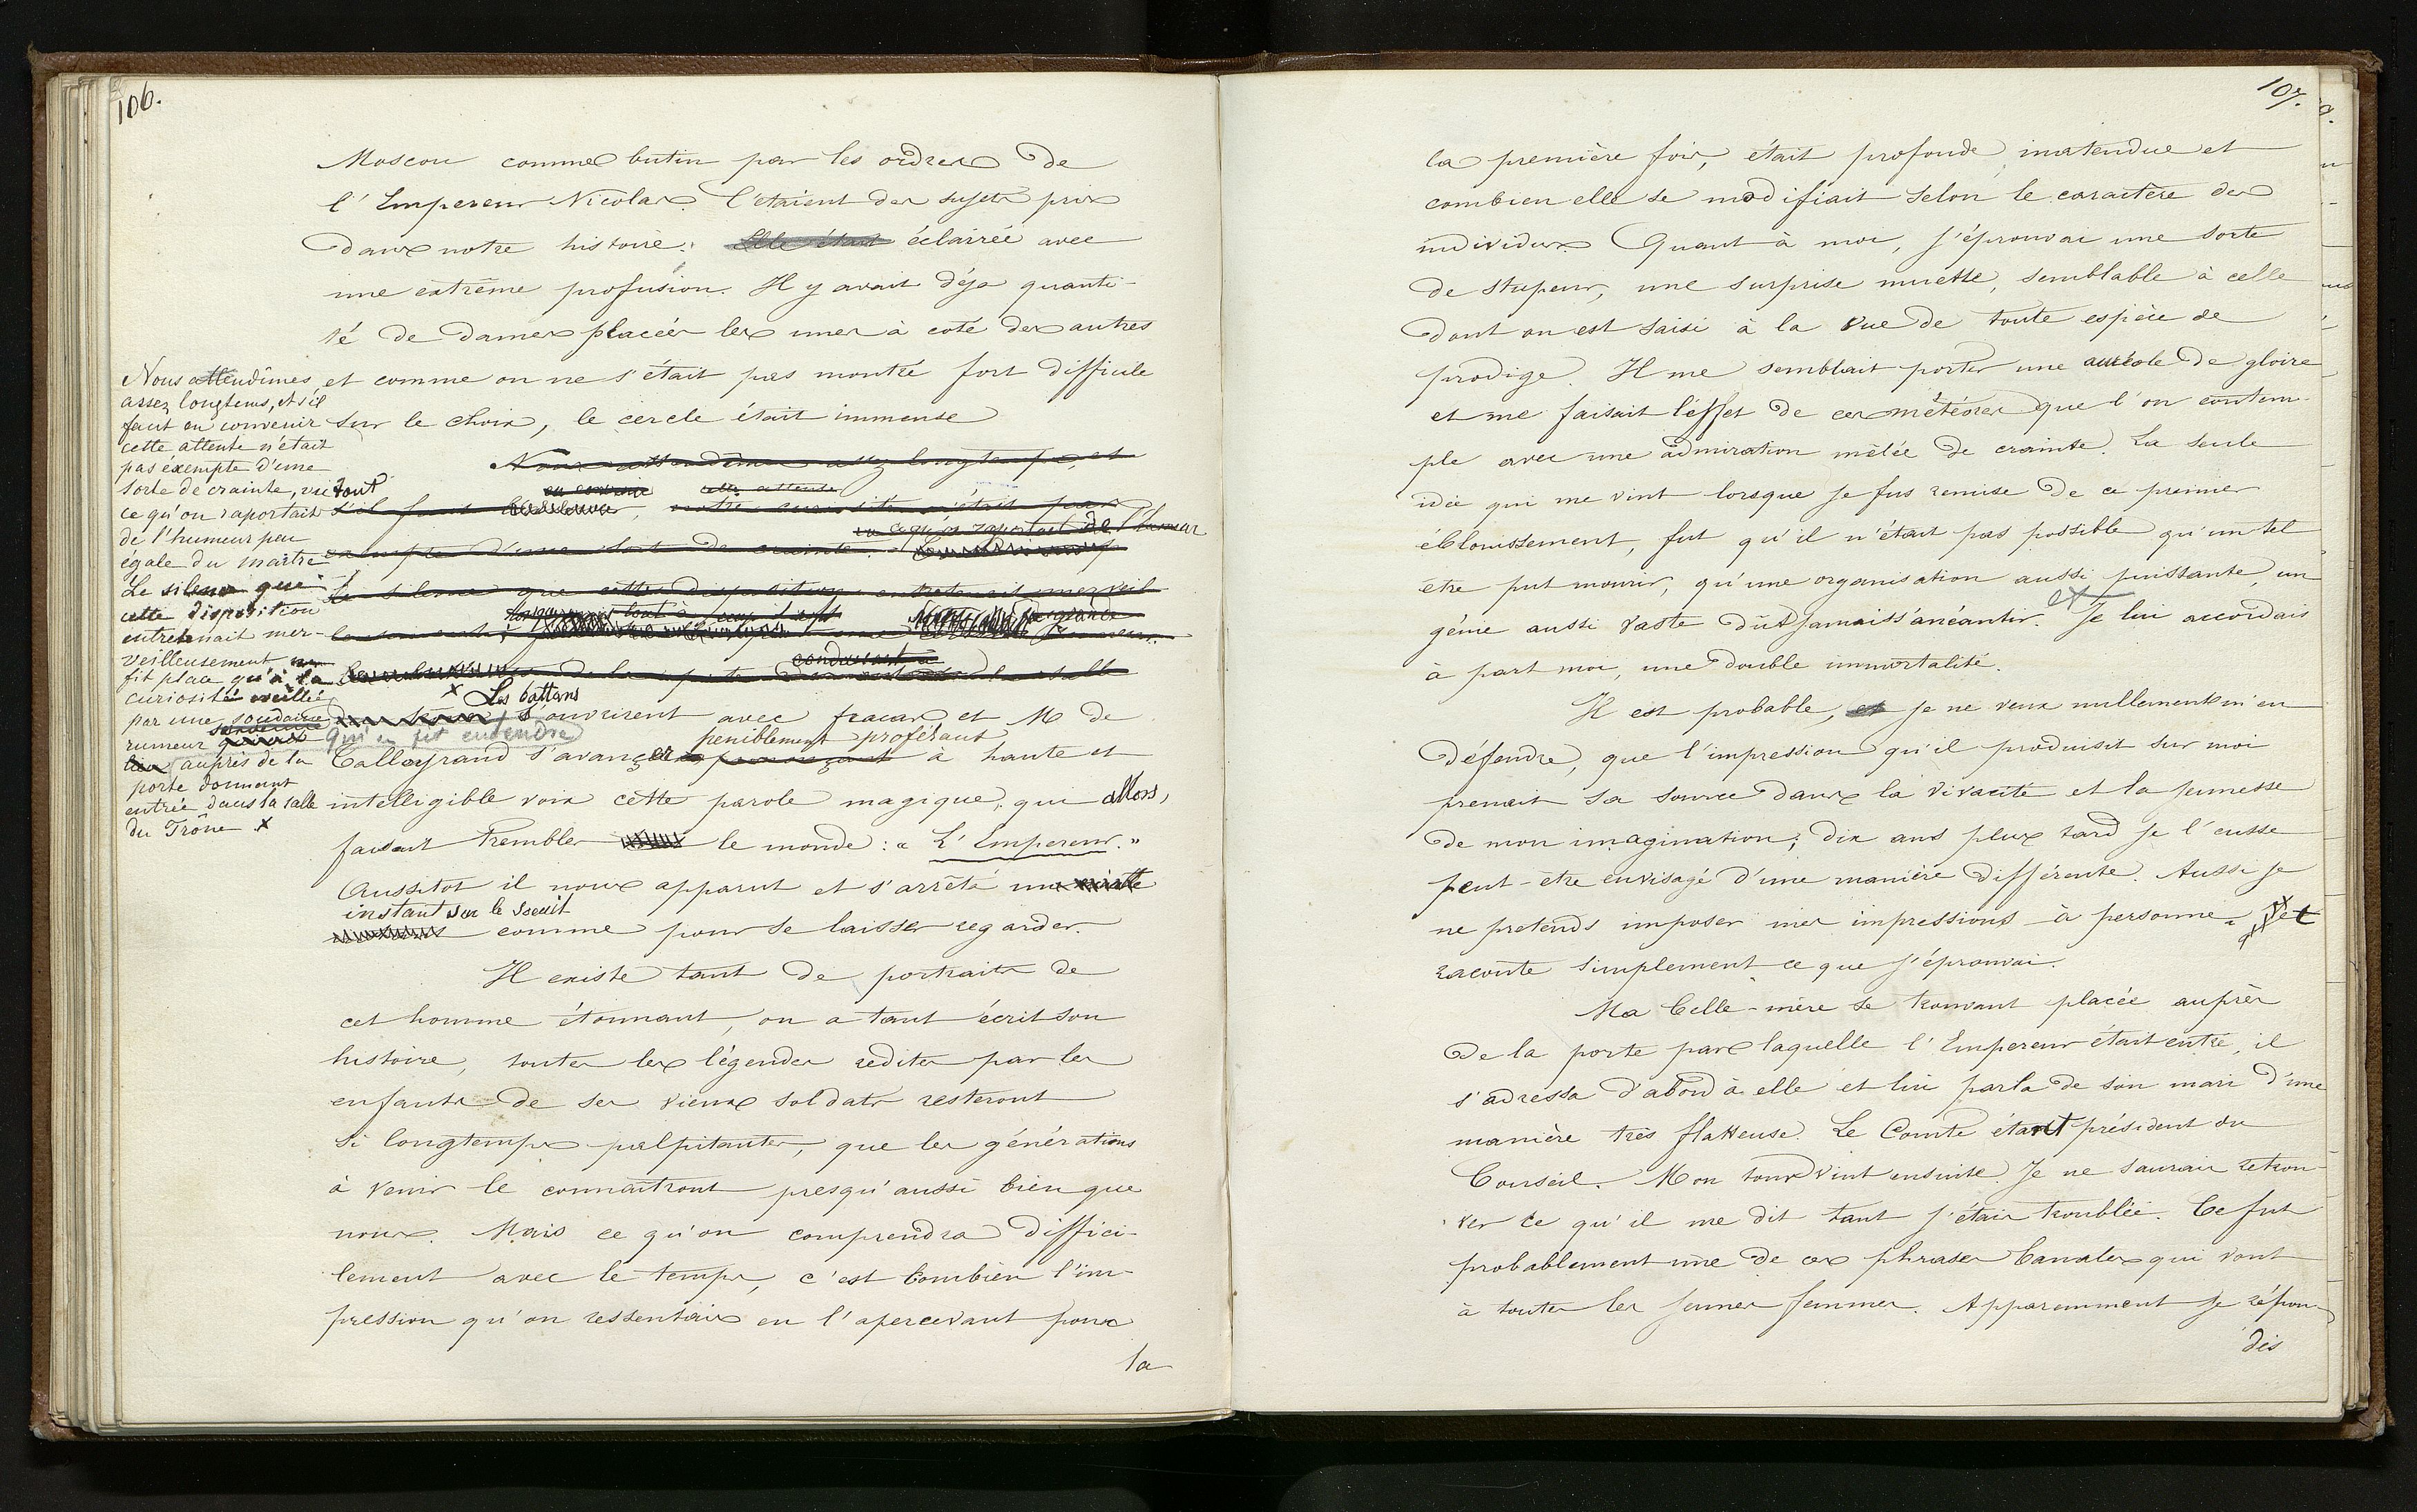 106.
Moscou comme butin par les ordres de
l'Empereur Nicolas. C'étaient des sujets pris
dans notre histoire. Elle était éclairée avec
une extrême profusion. Il y avait déja quanti-
té de dames placées les unes à coté des autres
et comme on ne s'était pas montré fort difficile
sur le choix, le cercle était immense
Nous attendîmes
assez longtems, et s'il
faut en convenir
cette attente n'était
pas éxempte d'une
sorte de crainte, vu tout
ce qu'on raportait
de l'humeur peu
égale du maitre
Le silence que
cette disposition
entretenait mer-
veilleusement ne
fit place qu'à la
curiosité éveillée
par une soudaine
rumeur qui se fit entendre
auprès de la
porte donnant
entrée dans la salle
du Trône x
Nous attendîmes assez longtemps, et
en convenir cette attente
s'il faut notre curiosité n'était pas
vu ce qu'on raportait de l'humeur
exempte d'une sorte de crainte.
Le silence que cette disposition entretenait merveil
lorsque tout à coup il se fit
conduisant à
x Les battans
s'ouvrirent avec fracas et M de
peniblement proférant
Talleyrand s'avança prononçant à haute et
intelligible voix cette parole magique, qui alors,
faisait trembler le monde: « L'Empereur. »
Aussitot il nous apparut et s'arrêta un
instant sur le seuil
comme pour se laisser regarder.
Il existe tant de portraits de
cet homme étonnant, on a tant écrit son
histoire, toutes les légendes redites par les
enfants de ses vieux soldats resteront
si longtemps palpitantes, que les générations
à venir le connaîtront presqu'aussi bien que
nous. Mais ce qu'on comprendra diffici-
lement avec le temps, c'est combien l'im-
pression qu'on ressentais en l'apercevant pour
la
107.
la première fois, était profonde, inatendue et
combien elle se modifiait selon le caractère des
individus. Quant à moi, j'éprouvai une sorte
de stupeur, une surprise muette, semblable à celle
dont on est saisi à la vue de toute espèce de
prodige. Il me semblait porter une auréole de gloire
et me faisait l'effet de ces météores que l'on contem-
ple avec une admiration mêlée de crainte. La seule
idée qui me vint lorsque je fus remise de ce premier
éblouissement, fut qu'il n'était pas possible qu'un tel
être put mourir, qu'une organisation aussi puissante, un
génie aussi vaste dût jamais s'anéantir. et Je lui accordais
à part moi, une double immortalité.
Il est probable, et je ne veux nullement m'en
défendre, que l'impression qu'il produisit sur moi
prenait sa source dans la vivacité et la jeunesse
de mon imagination; dix ans plus tard je l'eusse
peut-être envisagé d'une manière différente. Aussi je
ne pretends imposer mes impressions à personne, et
raconte simplement ce que j'éprouvai.
Ma belle-mère se trouvant placée auprès
de la porte par laquelle l'Empereur était entré, il
s'adressa d'abord à elle et lui parla de son mari d'une
manière très flatteuse. Le Comte étant président du
Conseil. Mon tour vint ensuite. Je ne saurais retrou-
ver ce qu'il me dit tant j'étais troublée. Ce fut
probablement une de ces phrases banales qui vont
à toutes les jeunes femmes. Apparemment je répon-
dis